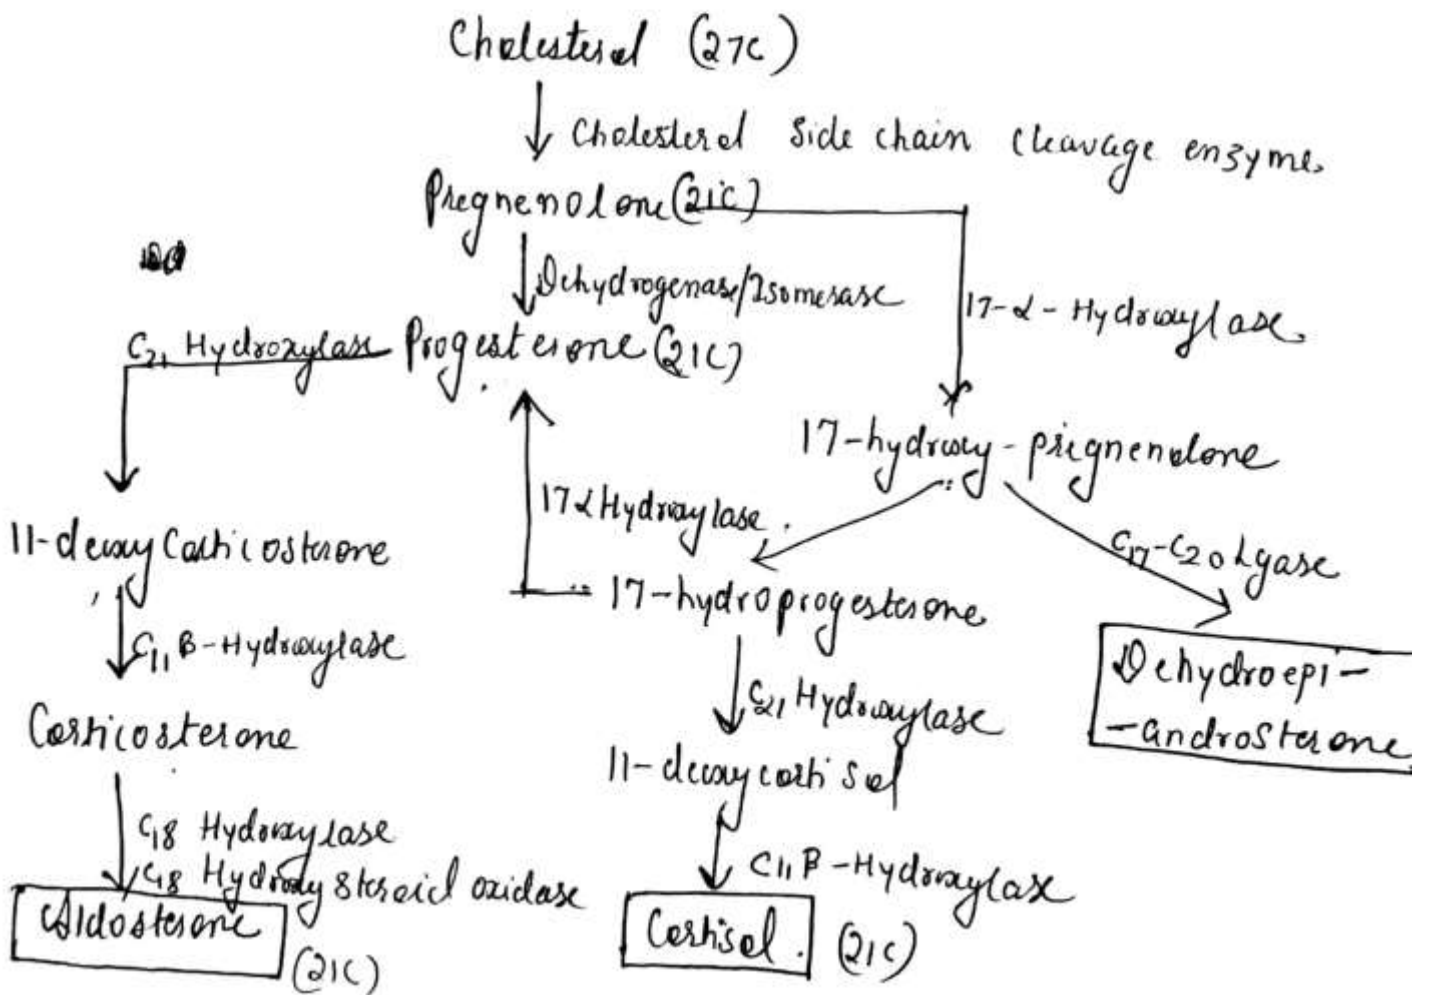 Cholesterol (27C)
Cholesterol Side chain cleavage enzyme.
Pregnenolone (21C)
Dehydrogenase/Isomerase
17-α-Hydroxylase.
C21 Hydroxylase
Progesterone (21C)
17-hydroxy-pregnenolone
17α Hydroxylase.
C17-C20 Lyase
11-deoxy Corticosterone
17-hydroprogesterone
C11 B-Hydroxylase
C21 Hydroxylase
Dehydroepi-
-androsterone
Corticosterone
11-deoxycortisol
C18 Hydroxylase
C18 Hydroxysteroid oxidase
C11 B-Hydroxylase
Aldosterone
(21C)
Cortisol.
(21C)